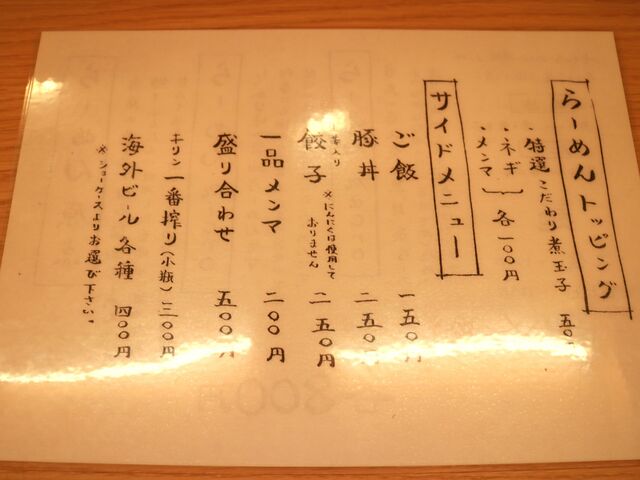 らーめんトッピング
・特選こだわり煮玉子 五〇
・ネギ
・メンマ
各一〇〇円
サイドメニュー
ご飯 一五〇円
豚丼 二五〇円
餃子 二五〇円
※にんにくは使用して
おりません
一品メンマ 二〇〇円
盛り合わせ 五〇〇円
キリン一番搾り(小瓶) 三〇〇円
海外ビール各種 四〇〇円
※ショーケースよりお選び下さい。